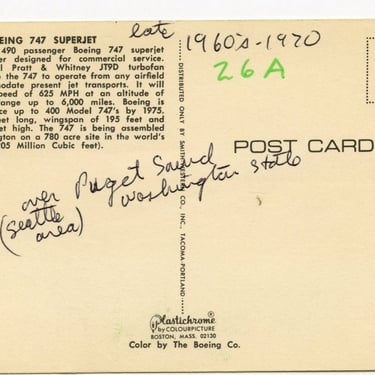 late 1960's-1970
26A
EING 747 SUPERJET
490 passenger Boeing 747 superjet
er designed for commercial service.
l Pratt & Whitney JT9D turbofan
the 747 to operate from any airfield
modate present jet transports. It will
peed of 625 MPH at an altitude of
nge up to 6,000 miles. Boeing is
ce up to 400 Model 747's by 1975.
eet long, wingspan of 195 feet and
et high. The 747 is being assembled
ngton on a 780 acre site in the world's
05 Million Cubic feet).
DISTRIBUTED BY SMITH CO., INC., TACOMA-PORTLAND
POST CARD
over Puget Sound
(Seattle area) Washington state
Plastichrome
by COLOURPICTURE
BOSTON, MASS. 02130
Color by The Boeing Co.